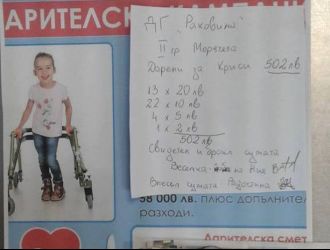 АРИТЕЛСК
ДГ "Раковина"
II гр Морячета
Дарени за Криси 502 лв
13 x 20 лв
22 x 10 лв
4 x 5 лв
1 x 2 лв
502 лв
Свидетел и броил сумата
Веселка
Внесъл сумата
58 000 лв. плюс допълните
разходи.
Дарителска смет